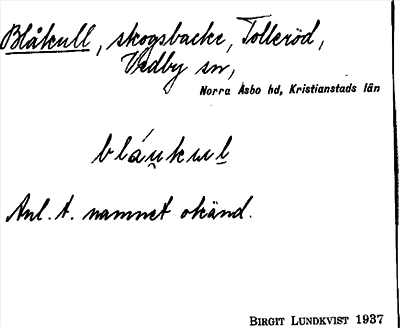 Blåkull, skogsbacke, Tolleröd,
Vedby sn,
Norra Åsbo hd, Kristianstads län
bláukul
Anl. t. namnet okänd.
BIRGIT LUNDKVIST 1937